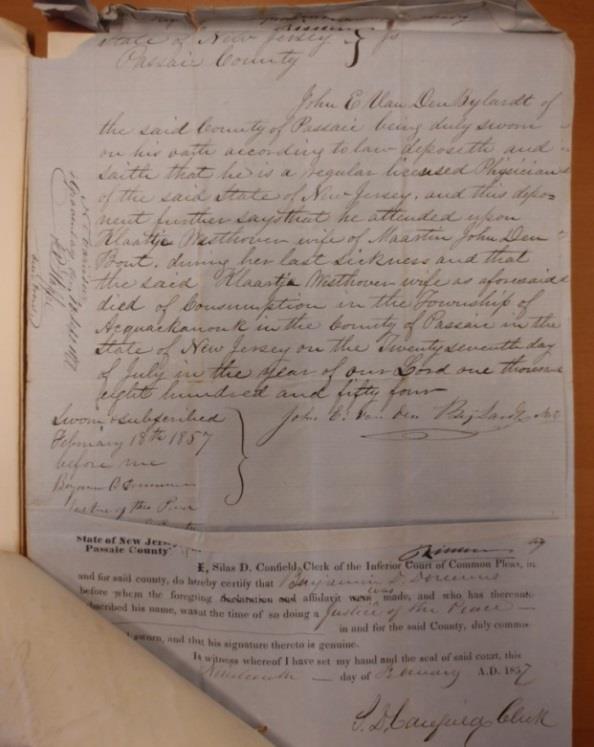 State of New Jersey } ss
Passaic County
John E Van Den Bylardt of
the said County of Passaic being duly sworn
on his oath according to law deposeth and
saith that he is a regular licensed Physician
of the said State of New Jersey, and this depo=
nent further says that he attended upon
Klaartje Westhoven wife of Maartin John Den
Bout, during her last sickness and that
the said Klaartje Westhoven wife as aforesaid
died of Consumption in the Township of
Acquackanonk in the County of Passaic in the
State of New Jersey on the Twenty seventh day
of July in the year of our Lord one thousand
eight hundred and fifty four
Sworn & subscribed
John E. Van den Bylardt
February 18th 1857
before me
Justice of the Peace
State of New Jersey
Passaic County
I, Silas D. Canfield, Clerk of the Inferior Court of Common Pleas, in
and for said county, do hereby certify that Benjamin D. Doremus
before whom the foregoing declaration and affidavit were was made, and who has thereunto
subscribed his name, was at the time of so doing a Justice of the Peace
in and for the said County, duly commis-
sworn, and that his signature thereto is genuine.
In witness whereof I have set my hand and the seal of said court, this
day of February A.D. 1857
S. D. Canfield Clerk